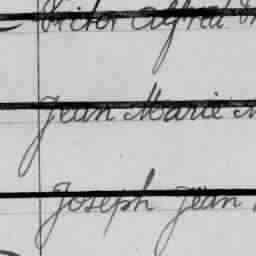 Victor Alfred
Jean Marie
Joseph Jean